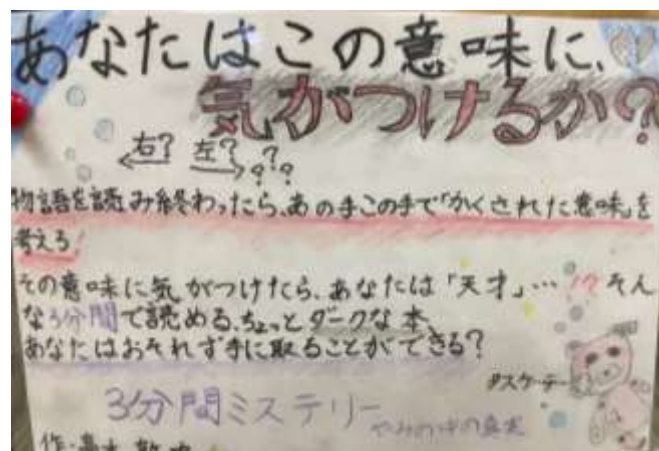 あなたはこの意味に、
気がつけるか?
右? 左? ???
物語を読み終わったら、あの手この手で「かくされた意味」を
考えろ!
その意味に気がつけたら、あなたは「天才」…!? そん
な3分間で読める、ちょっとダークな本、
あなたはおそれず手に取ることができる?
3分間ミステリー
やみの中の真実
作・